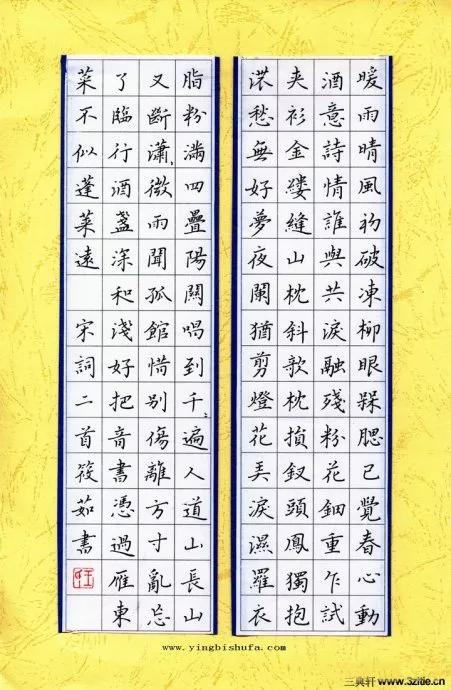 暖雨晴風初破凍柳眼楳腮已覺春心動
酒意詩情誰與共淚融殘粉花鈿重乍試
夾衫金縷縫山枕斜欹枕損釵頭鳳獨抱
濃愁無好夢夜闌猶剪燈花弄淚濕羅衣
脂粉滿四疊陽關唱到千々遍人道山長山
又斷瀟々微雨聞孤館惜別傷離方寸亂忘
了臨行酒盞深和淺好把音書憑過雁東
萊不似蓬萊遠 宋詞二首筱茹書
www.yingbishufa.com
三典轩 www.3zitie.cn